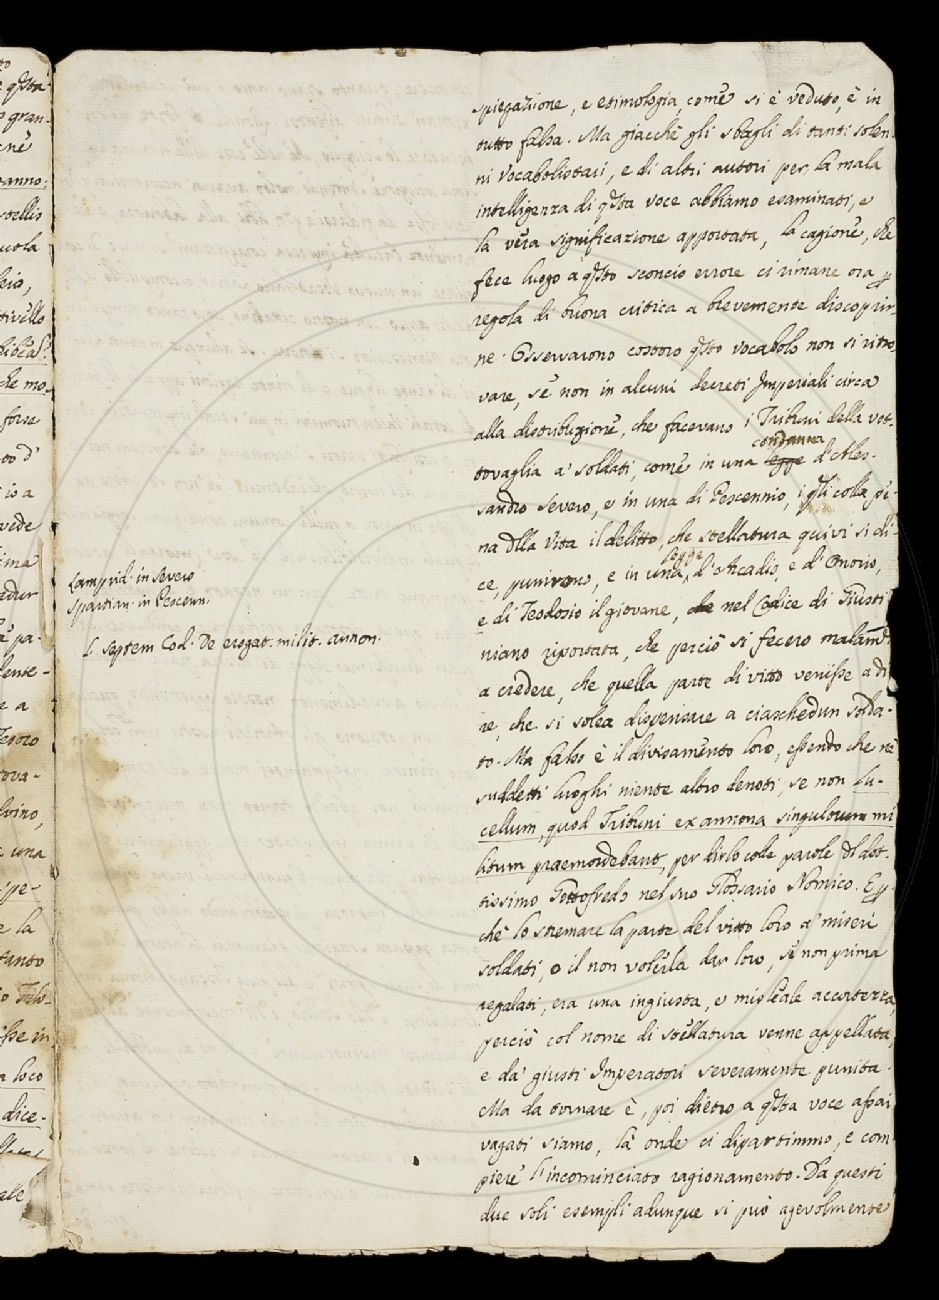 spiegazione, e etimologia, come si è veduto, è in
tutto falsa. Ma giacchè gli sbagli di tanti solen
ni Vocabolistari, e di altri autori per la mala
intelligenza di qsta voce abbiamo esaminati, e
la vera significazione apportata, la cagione, che
fece luogo a qsto sconcio errore ci rimane ora p
regola di buona critica a brevemente discoprir
ne. Osservarono costoro qsto vocabolo non si ritro
vare, se non in alcuni decreti Imperiali circa
alla distribuzione, che facevano i Tribuni della vet-
condanna
tovaglia a' soldati, come in una legge d'Ales-
sandro Severo, e in una di Pescennio, i qli colla pe-
na dlla vita il delitto, che stellatura quivi si di-
legge
ce, punirono, e in una, d'Arcadio, e d'Onorio,
e di Teodosio il giovane, che nel Codice di Giusti
niano riportata, che perciò si fecero malamte
a credere, che quella parte di vitto venisse a di
re, che si solea dispensare a ciaschedun solda-
to. Ma falso è il divisamento loro, essendo che ne'
suddetti luoghi niente altro denoti, se non lu-
cellum, quod Tribuni ex annona singulorum mi
litum praemordebant, per dirlo colle parole dl dot-
tissimo Gottofredo nel suo Glossario Nomico. E p
chè lo stremare la parte del vitto loro a' miseri
soldati, o il non volerla dar loro, se non prima
regalati, era una ingiusta, e misleale accortezza,
perciò col nome di stellatura venne appellata,
e da' giusti Imperatori severamente punita.
Ma da tornare è, poi dietro a qsta voce assai
vagati siamo, là onde ci dipartimmo, e com
piere l'incominciato ragionamento. Da questi
due soli esempli adunque si può agevolmente
Lamprid. in Severo
Spartian. in Pescenn.
l. septem Cod. De erogat. milit. annon.